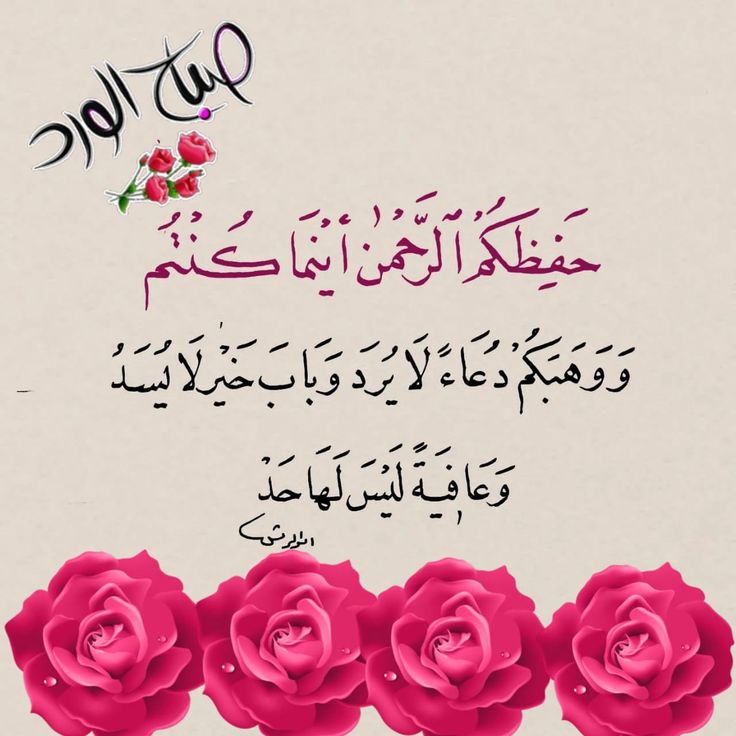 صباح الورد
حَفِظَكُمْ ٱلرَّحْمٰنُ أَيْنَمَا كُنْتُمْ
وَوَهَبَكُمْ دُعَاءً لَا يُرَد وَبَابَ خَيْرٍ لَا يُسَدُ
وَعَافِيَةً لَيْسَ لَهَا حَدْ